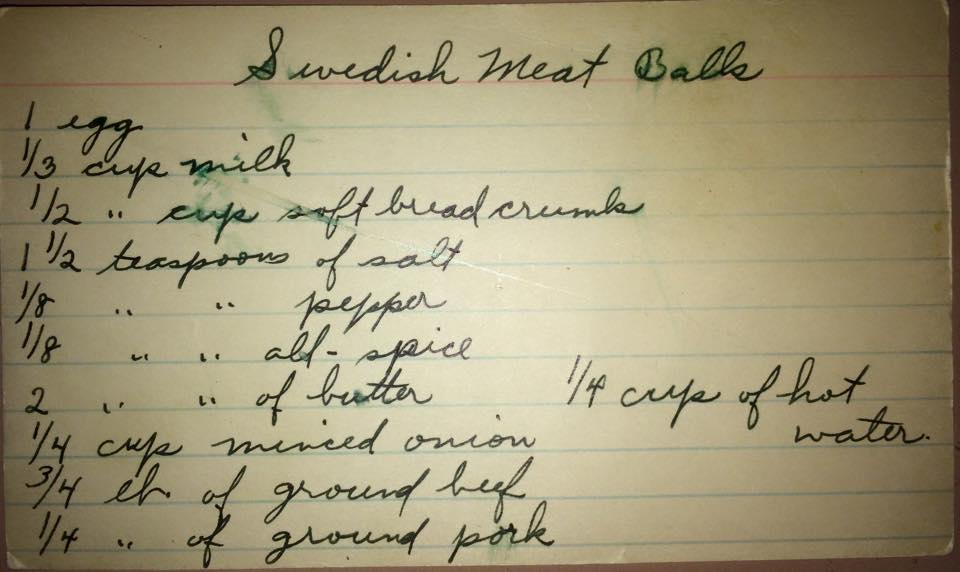 Swedish Meat Balls
1 egg
1/3 cup milk
1/2 " cup soft bread crumbs
1 1/2 teaspoons of salt
1/8 " " pepper
1/8 " " all-spice
2 " " of butter
1/4 cup minced onion
3/4 lb. of ground beef
1/4 " of ground pork
1/4 cup of hot
water.